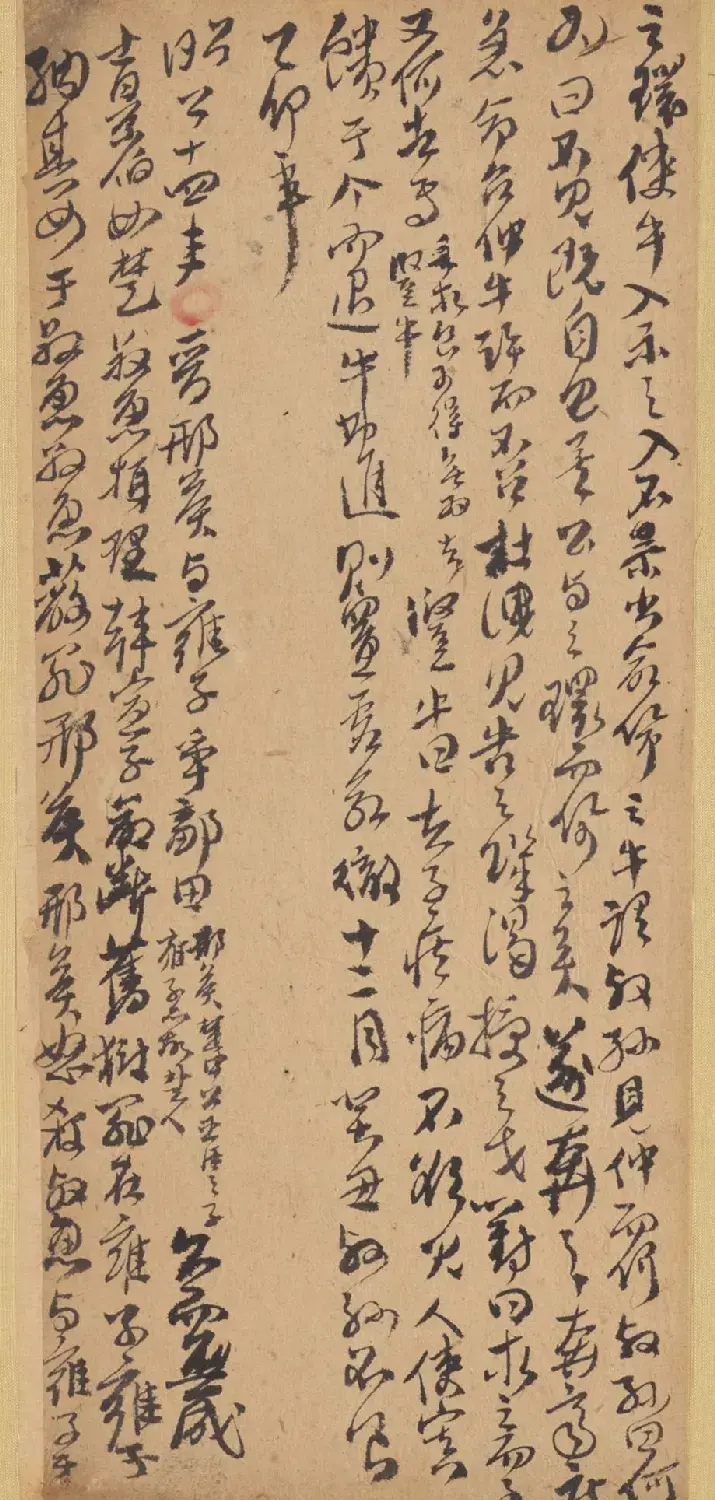 之環使牛入示之入不示出命佩之牛謂叔孫見仲而何叔孫曰何
為曰不見既自見矣公与之環而佩之矣遂奔之奔齊疾
急命召仲牛許而不召杜洩見告之飢渴授之戈對曰求之而至
又何去焉
求食可得無為去
豎牛
豎牛曰夫子疾病不欲見人使寘
饋于个而退牛弗進則置虛命徹十二月癸丑叔孫不食
乙卯卒
昭公十四年 晉邢侯与雍子爭鄐田
邢侯楚申公巫臣之子
雍子亦故楚人
久而無成
士景伯如楚叔魚攝理韓宣子命斷舊獄罪在雍子雍子
納其女于叔魚叔魚蔽罪邢侯邢侯怒殺叔魚与雍子于